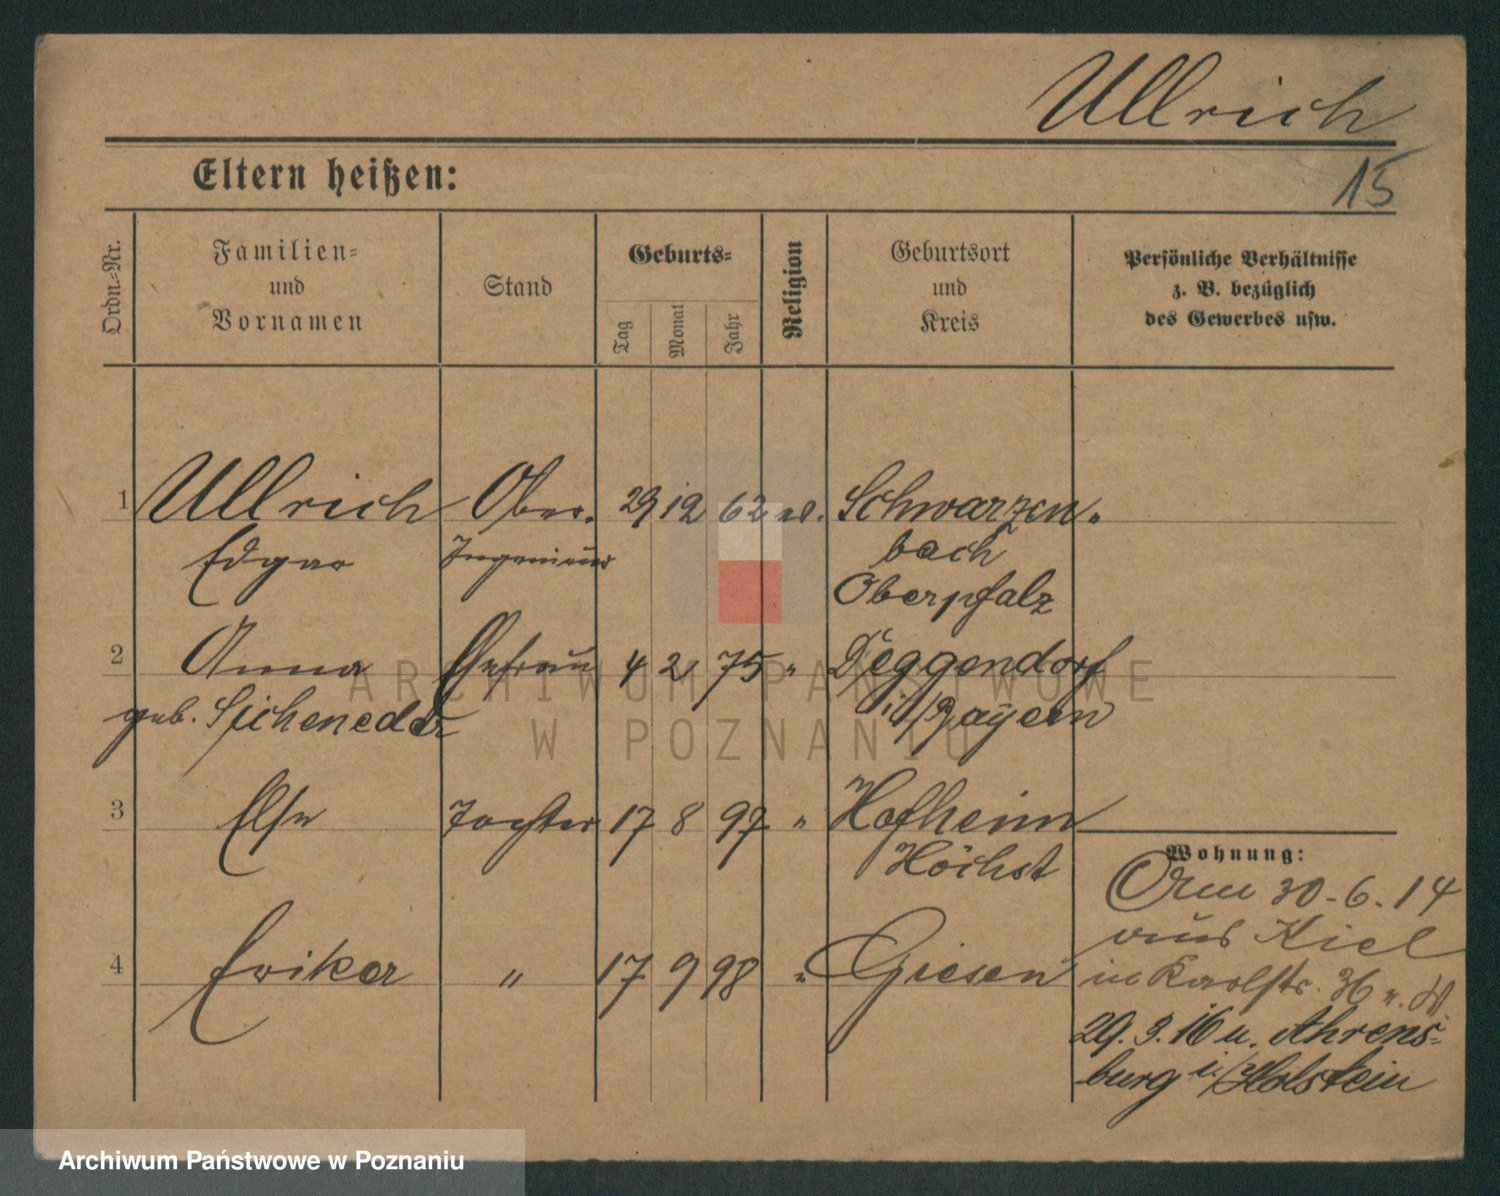 Ullrich
15
Eltern heißen:
Ordn.-Nr.
Familien-
und
Vornamen
Stand
Geburts-
Tag
Monat
Jahr
Religion
Geburtsort
und
Kreis
Persönliche Verhältnisse
z. B. bezüglich
des Gewerbes usw.
1 Ullrich Ober. 29 12 62 Schwarzen-
Edgar Ingenieur bach
Oberpfalz
2 Anna Ehefrau 4 2 75 " Deggendorf
geb. Sicheneder i/Bayern
3 Else Tochter 17 8 97 " Hofheim
Höchst
4 Erika " 17 9 98 " Giesen
Wohnung:
Am 30.6.14
aus Kiel
in Karlstr. 36
29.3.16 n. Ahrens-
burg i/Holstein
ARCHIWUM PAŃSTWOWE
W POZNANIU
Archiwum Państwowe w Poznaniu